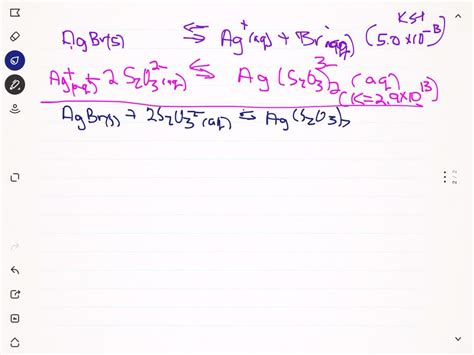 AgBr(s) ⇌ Ag⁺(aq) + Br⁻(aq) (5.0×10⁻¹³)
Ag⁺(aq) + 2 S₂O₃²⁻(aq) ⇌ Ag(S₂O₃)₂³⁻ (aq)
(K=2.9×10¹³)
AgBr(s) + 2S₂O₃²⁻(aq) ⇌ Ag(S₂O₃)₂
2/2